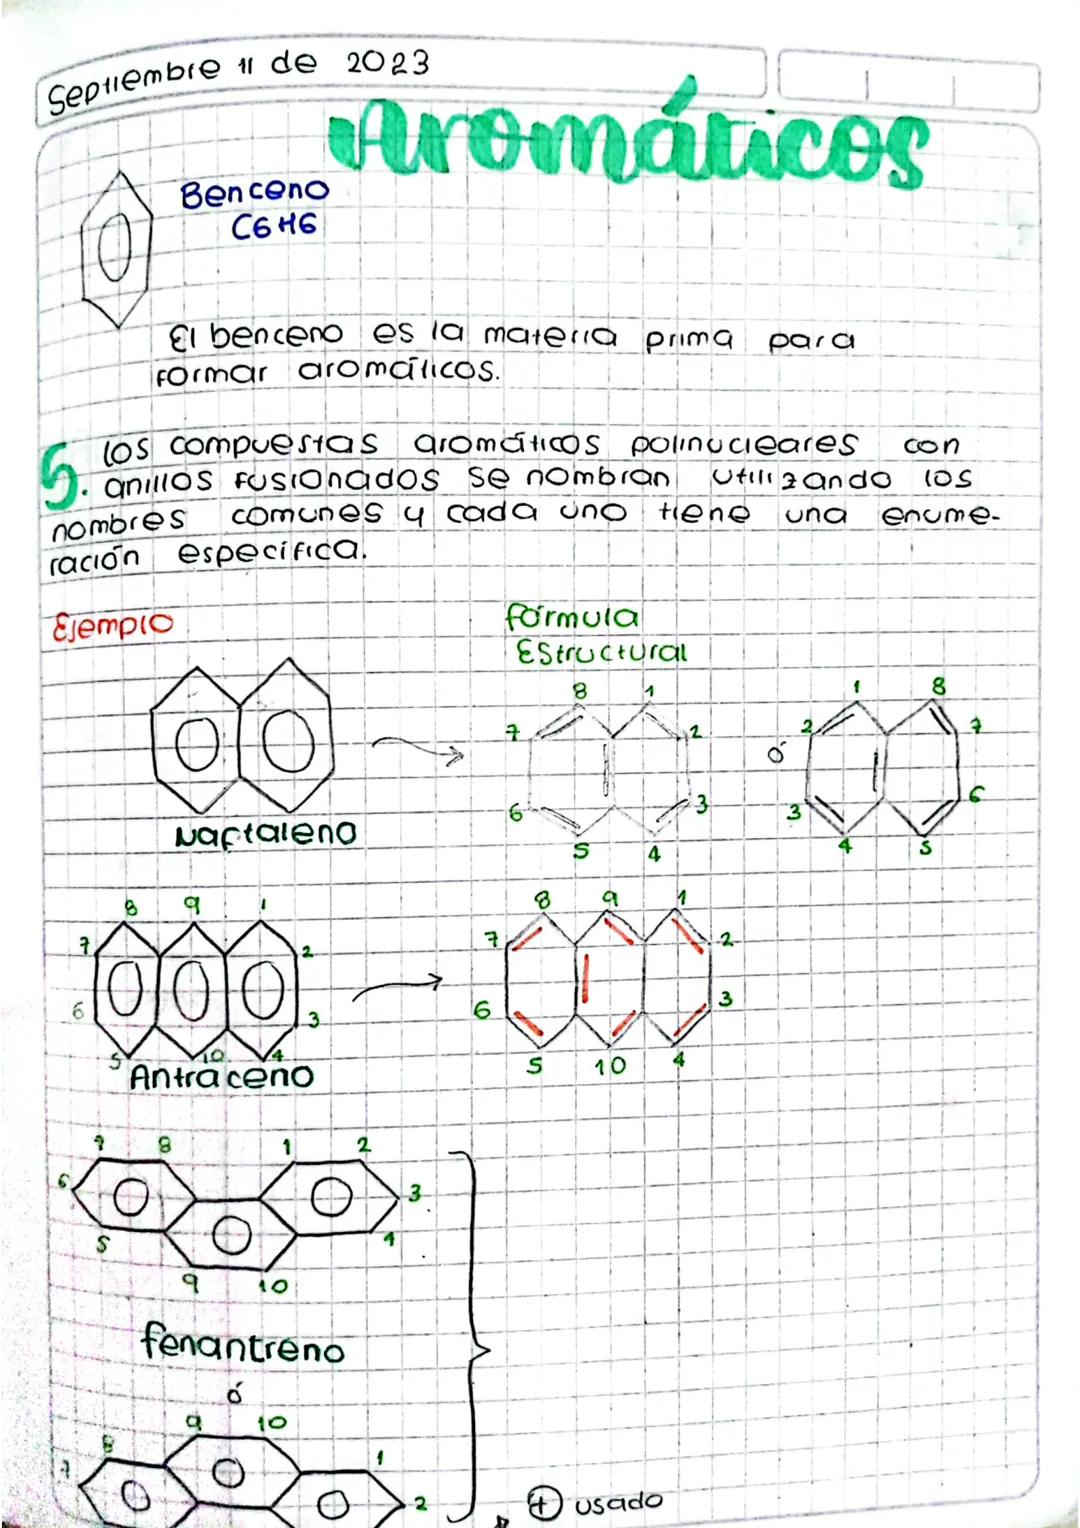 Septiembre 11 de 2023
Aromáticos
Benceno
C6H6
El benceno es la materia prima para
formar aromáticos.
5. los compuestas aromáticos polinucleares con
anillos fusionados se nombran utilizando los
nombres comunes y cada uno tiene una enume-
ración específica.
Ejemplo
fórmula
Estructural
8 1
7 2
6 3
5 4
ó
1 8
2 7
3 6
4 5
Naftaleno
8 9 1
7 2
6 3
5 10 4
Antraceno
8 9 1
7 2
6 3
5 10 4
7 8 1 2
6 3
5 4
9 10
fenantreno
ó
9 10
8 1
7 2
+ usado